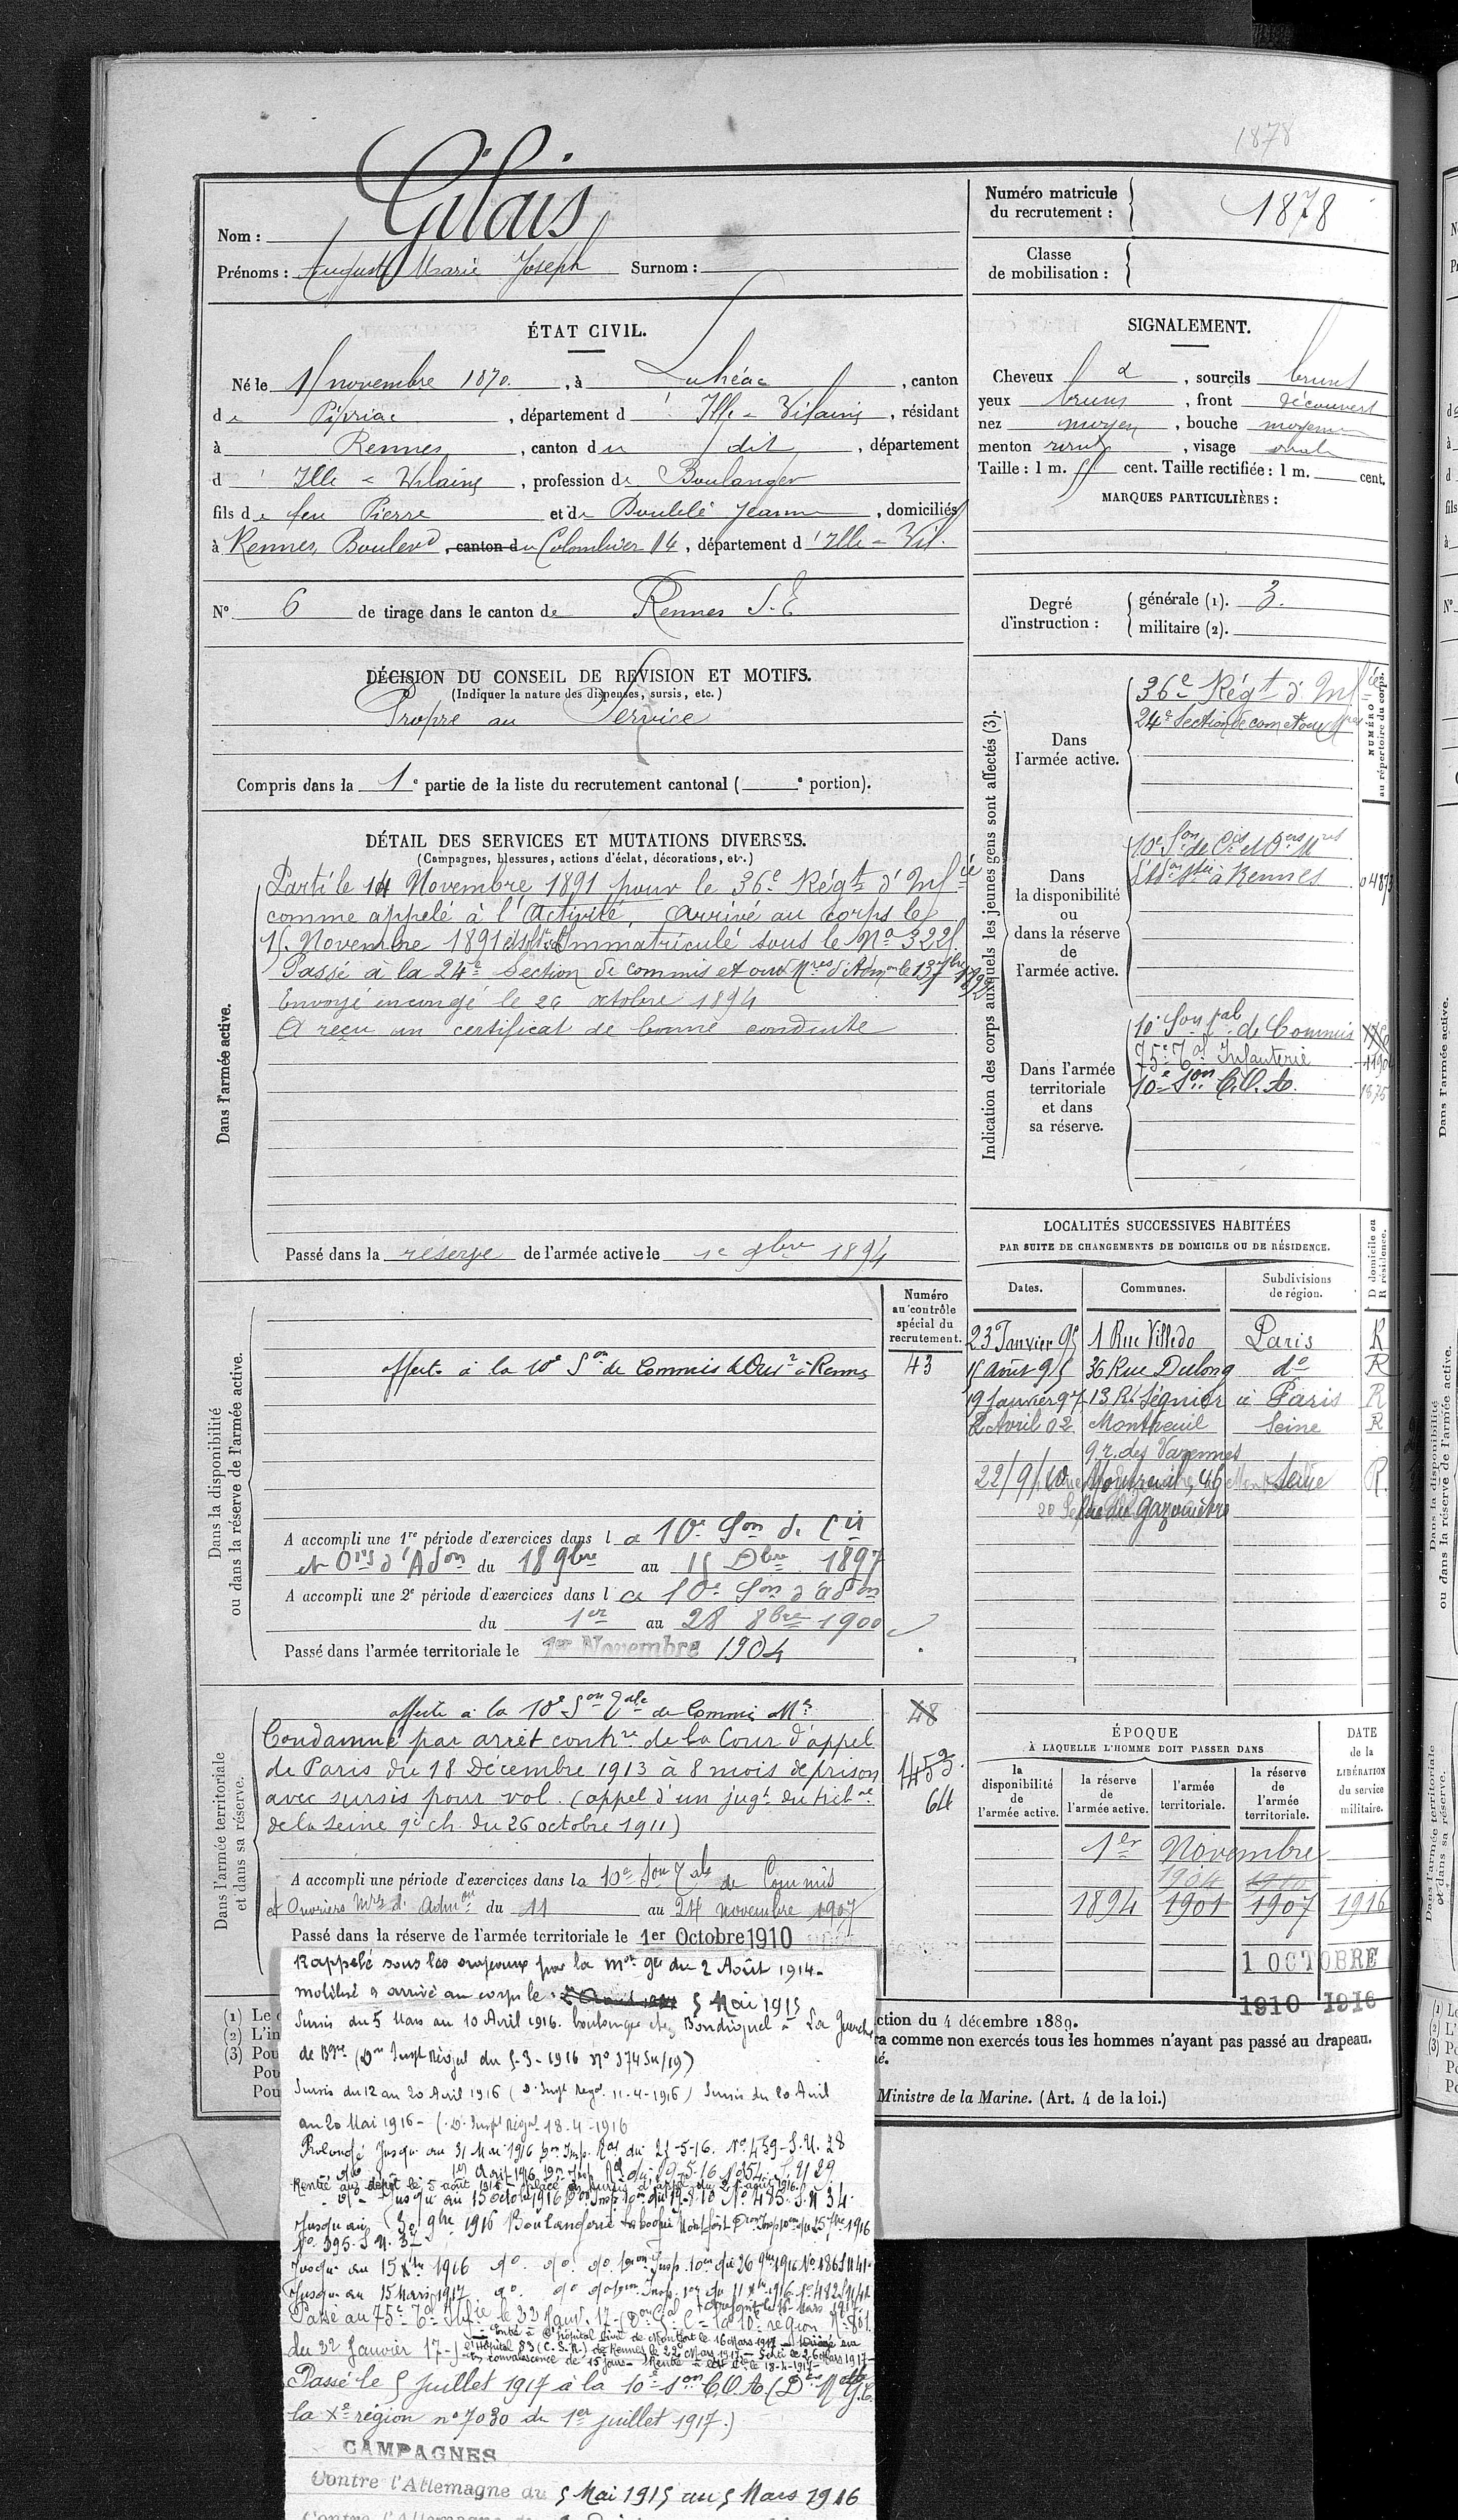 1878
Nom : Gilais
Prénoms : Auguste Marie Joseph Surnom :
Numéro matricule du recrutement : 1878
Classe de mobilisation :
ÉTAT CIVIL.
Né le 15 novembre 1870, à Lohéac, canton
de Pipriac, département d' Ille-&-Vilaine, résidant
à Rennes, canton du dit, département
d' Ille & Vilaine, profession de Boulanger
fils de feu Pierre et de Jeanne, domiciliés
à Rennes, Boulevd canton du Colombier 14, département d'Ille-&-Vil.
N° 6 de tirage dans le canton de Rennes S.E
SIGNALEMENT.
Cheveux &, sourcils bruns
yeux bruns, front découvert
nez moyen, bouche moyenne
menton rond, visage ovale
Taille : 1 m. cent. Taille rectifiée : 1 m. cent.
MARQUES PARTICULIÈRES :
Degré d'instruction : générale (1). 3.
militaire (2).
DÉCISION DU CONSEIL DE REVISION ET MOTIFS.
(Indiquer la nature des dispenses, sursis, etc.)
Propre au Service
Compris dans la 1e partie de la liste du recrutement cantonal ( e portion).
DÉTAIL DES SERVICES ET MUTATIONS DIVERSES.
(Campagnes, blessures, actions d'éclat, décorations, etc.)
Dans l'armée active.
Parti le 14 Novembre 1891 pour le 36e Régt d'Infie
comme appelé à l'Activité, Arrivé au corps le
15 Novembre 1891 Immatriculé sous le No 3221.
Passé à la 24e Section de commis et ouvrs Mres d'Admon le 13
Envoyé en congé le 26 octobre 1894
A reçu un certificat de bonne conduite
Passé dans la réserve de l'armée active le 1e 9bre 1894
Indication des corps auxquels les jeunes gens sont affectés (3).
NUMÉRO au répertoire du corps.
Dans l'armée active.
36e Régt d'Infie
24e Section de com et ouv Mres
Dans la disponibilité ou dans la réserve de l'armée active.
10e Son de Cis et Oers Mres
d'Adon à Rennes
04873
Dans l'armée territoriale et dans sa réserve.
10e Son tale de Commis
75e Tal Infanterie
10e Son C.O.A.
1875
LOCALITÉS SUCCESSIVES HABITÉES
PAR SUITE DE CHANGEMENTS DE DOMICILE OU DE RÉSIDENCE.
Dates. Communes. Subdivisions de région. D domicile ou R résidence.
23 Janvier 95 1 Rue Villedo Paris R
15 août 95 36 Rue Dulong do R
19 Janvier 97 13 R. Séguier à Paris R
2 Avril 02 Montreuil Seine R
9 r. des Varennes
22/9/10 Montreuil, 46 Seine R.
Rue du Gazomètre
Dans la disponibilité ou dans la réserve de l'armée active.
Numéro au contrôle spécial du recrutement.
affecté à la 10e Son de Commis & Ouvr à Rennes 43
A accompli une 1re période d'exercices dans la 10e Son de Cis
et Oers d'Adon du 18 9bre au 15 Dbre 1897
A accompli une 2e période d'exercices dans la 10e Son d'Adon
du 1er au 28 8bre 1900
Passé dans l'armée territoriale le 1er Novembre 1904
Dans l'armée territoriale et dans sa réserve.
affecté à la 10e Son Tale de Commis Mres 48
Condamné par arrêt contre de la Cour d'appel
de Paris du 18 Décembre 1913 à 8 mois de prison
avec sursis pour vol. (appel d'un jugt du tribal
de la Seine 9e ch. du 26 octobre 1911)
64
A accompli une période d'exercices dans la 10e Son Tale de Commis
et Ouvriers Mres d'Admon du 11 au 24 novembre 1907
Passé dans la réserve de l'armée territoriale le 1er Octobre 1910
ÉPOQUE
À LAQUELLE L'HOMME DOIT PASSER DANS
la disponibilité de l'armée active. la réserve de l'armée active. l'armée territoriale. la réserve de l'armée territoriale.
DATE de la LIBÉRATION du service militaire.
1er Novembre
1904 1910
1894 1901 1907 1916
1 OCTOBRE
1910 1916
ction du 4 décembre 1889.
ra comme non exercés tous les hommes n'ayant pas passé au drapeau.
Ministre de la Marine. (Art. 4 de la loi.)
(1) Le
(2) L'in
(3) Pou
Pou
Pou
Rappelé sous les drapeaux par la mon gle du 2 Août 1914-
mobilisé & arrivé au corps le 5 Mai 1915
Sursis du 5 Mars au 10 Avril 1916. boulanger chez à La Guerche
de Bgne (Don Inspt Régal du 5-3-1916 No 3745u/19)
Sursis du 12 au 20 Avril 1916 (D. Inspt Régal 11-4-1916) Sursis du 20 Avril
au 20 Mai 1916- (D. Inspt Régal 18-4-1916
Prolongé jusqu'au 31 Mai 1916 Don Insp. Ral du 21-5-16. No 459-S.U. 28
Rentré au dépôt le 5 août 1916
jusqu'au 15 octobre 1916 No 485.S.U 34.
Jusqu'au 30 9bre 1916 Boulangerie Montfort 1916
No 395-S.U. 37
Jusqu'au 15 Xbre 1916 do do do Don Insp. 10on du 26 9bre 1916
Jusqu'au 15 Mars 1917 do do do Don Insp. du 11 Xbre 1916
Passé au 75e Tal Infie le 22 Janv. 17-(Don Gal Ct la 10e région No 861
du 22 Janvier 17-)
Entré à l'hôpital civil de Montfort le 16 Mars 1917
l'Hôpital 83 (C.S.R.) de Rennes le 22 Mars 1917. Sorti le 26 Mars 1917-
En convalescence de 15 jours- Rentré le 18-4-1917-
Passé le 5 Juillet 1917 à la 10e Son C.O.A. (D
la Xe région no 7030 du 1er juillet 1917.)
CAMPAGNES
Contre l'Allemagne du 5 Mai 1915 au 5 Mars 1916